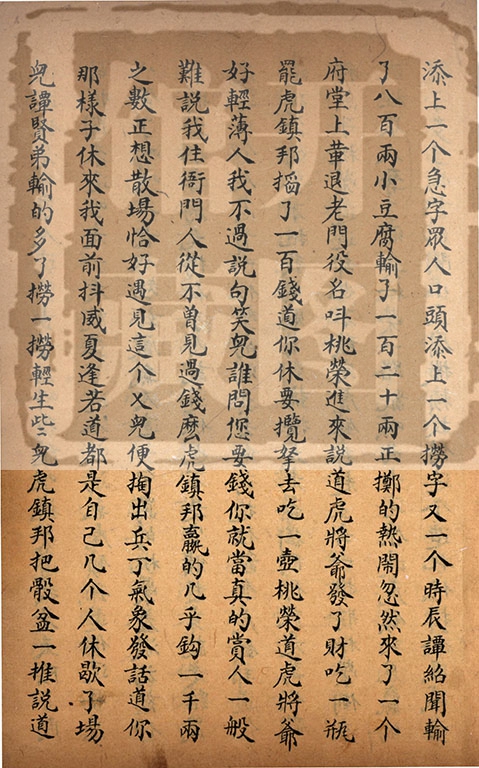 添上一个急字眾人口頭添上一个撈字又一个時辰譚紹聞輸
了八百兩小豆腐輸了一百二十兩正擲的熱鬧忽然來了一个
府堂上革退老門役名呌桃榮進來說道虎將爺發了財吃一瓶
罷虎鎮邦搯了一百錢道你休要攬拏去吃一壺桃榮道虎將爺
好輕薄人我不過說句笑兒誰問您要錢你就當真的賞人一般
難說我住衙門人從不曽見過錢麽虎鎮邦贏的几乎鈎一千兩
之數正想散場恰好遇見這个乂兒便掏出兵丁氣象發話道你
那樣子休來我面前抖威夏逢若道都是自己几个人休歇了場
兒譚賢弟輸的多了撈一撈輕生些兒虎鎮邦把骰盆一推說道